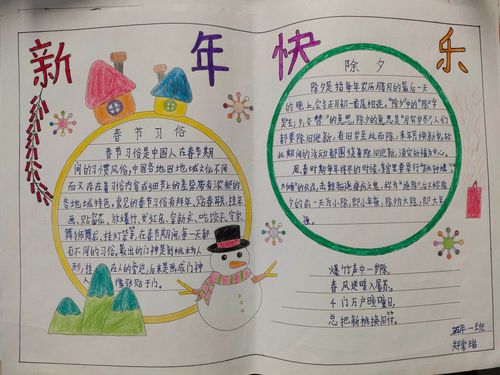 新年快乐
春节习俗
春节习俗是中国人在春节期
间的习惯风俗,中国各地因地域文化不同
而又存在着习俗内容或细节上的差异,带有浓郁的
各地域特色。常见的春节习俗有拜年、贴春联、挂年
画、贴窗花、放爆竹、发红包、穿新衣、吃饺子、守岁、
舞狮舞龙、挂灯笼等,在春节期间,每一天都
有不同的习俗。最出的门神是刻桃木为人
形,挂在人的旁边,后来是画成门神
人像张贴于门。
除夕
除夕是指每年农历腊月的最后一天
的晚上,它与正月初一首尾相连。"除夕"中的"除"字
是去;
的意思,除夕的意思是"月穷岁尽",人们
都要除旧迎新,有旧岁至此而除,来年另换新岁,故
此期间的活动都围绕着除旧迎新,消灾祈福为中心。
周、秦时期每年将尽的时候,皇宫里要举行
的仪式,击鼓驱逐疫疠之鬼,称为"逐除",后又称除
夕的前一天为小除,即小年夜,除夕为大除,即大年
夜。
爆竹声中一岁除,
春风送暖入屠苏。
千门万户曈曈日,
总把新桃换旧符。
五年一班